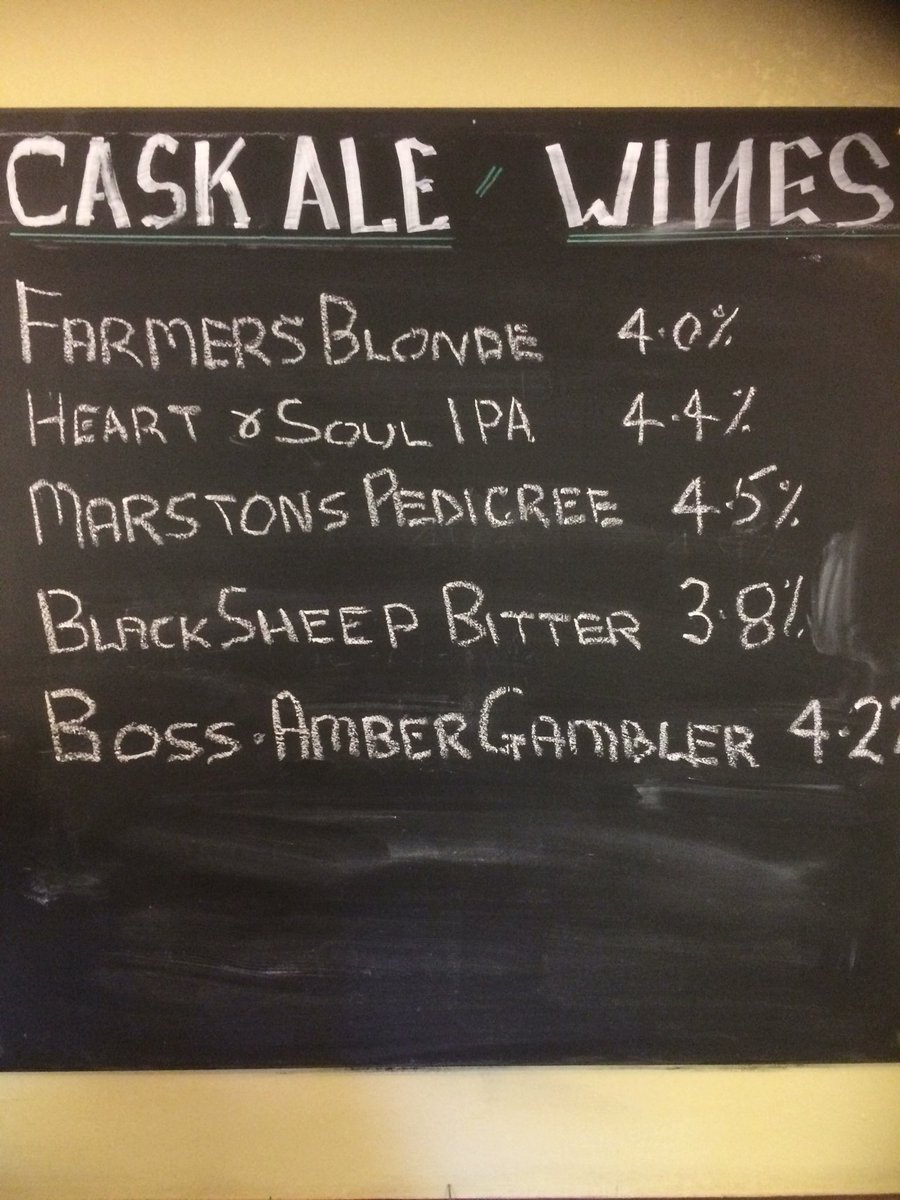 CASK ALE // WINES
FARMERS BLONDE 4.0%
HEART & SOUL IPA 4.4%
MARSTONS PEDIGREE 4.5%
BLACK SHEEP BITTER 3.8%
BOSS. AMBER GAMBLER 4.2%